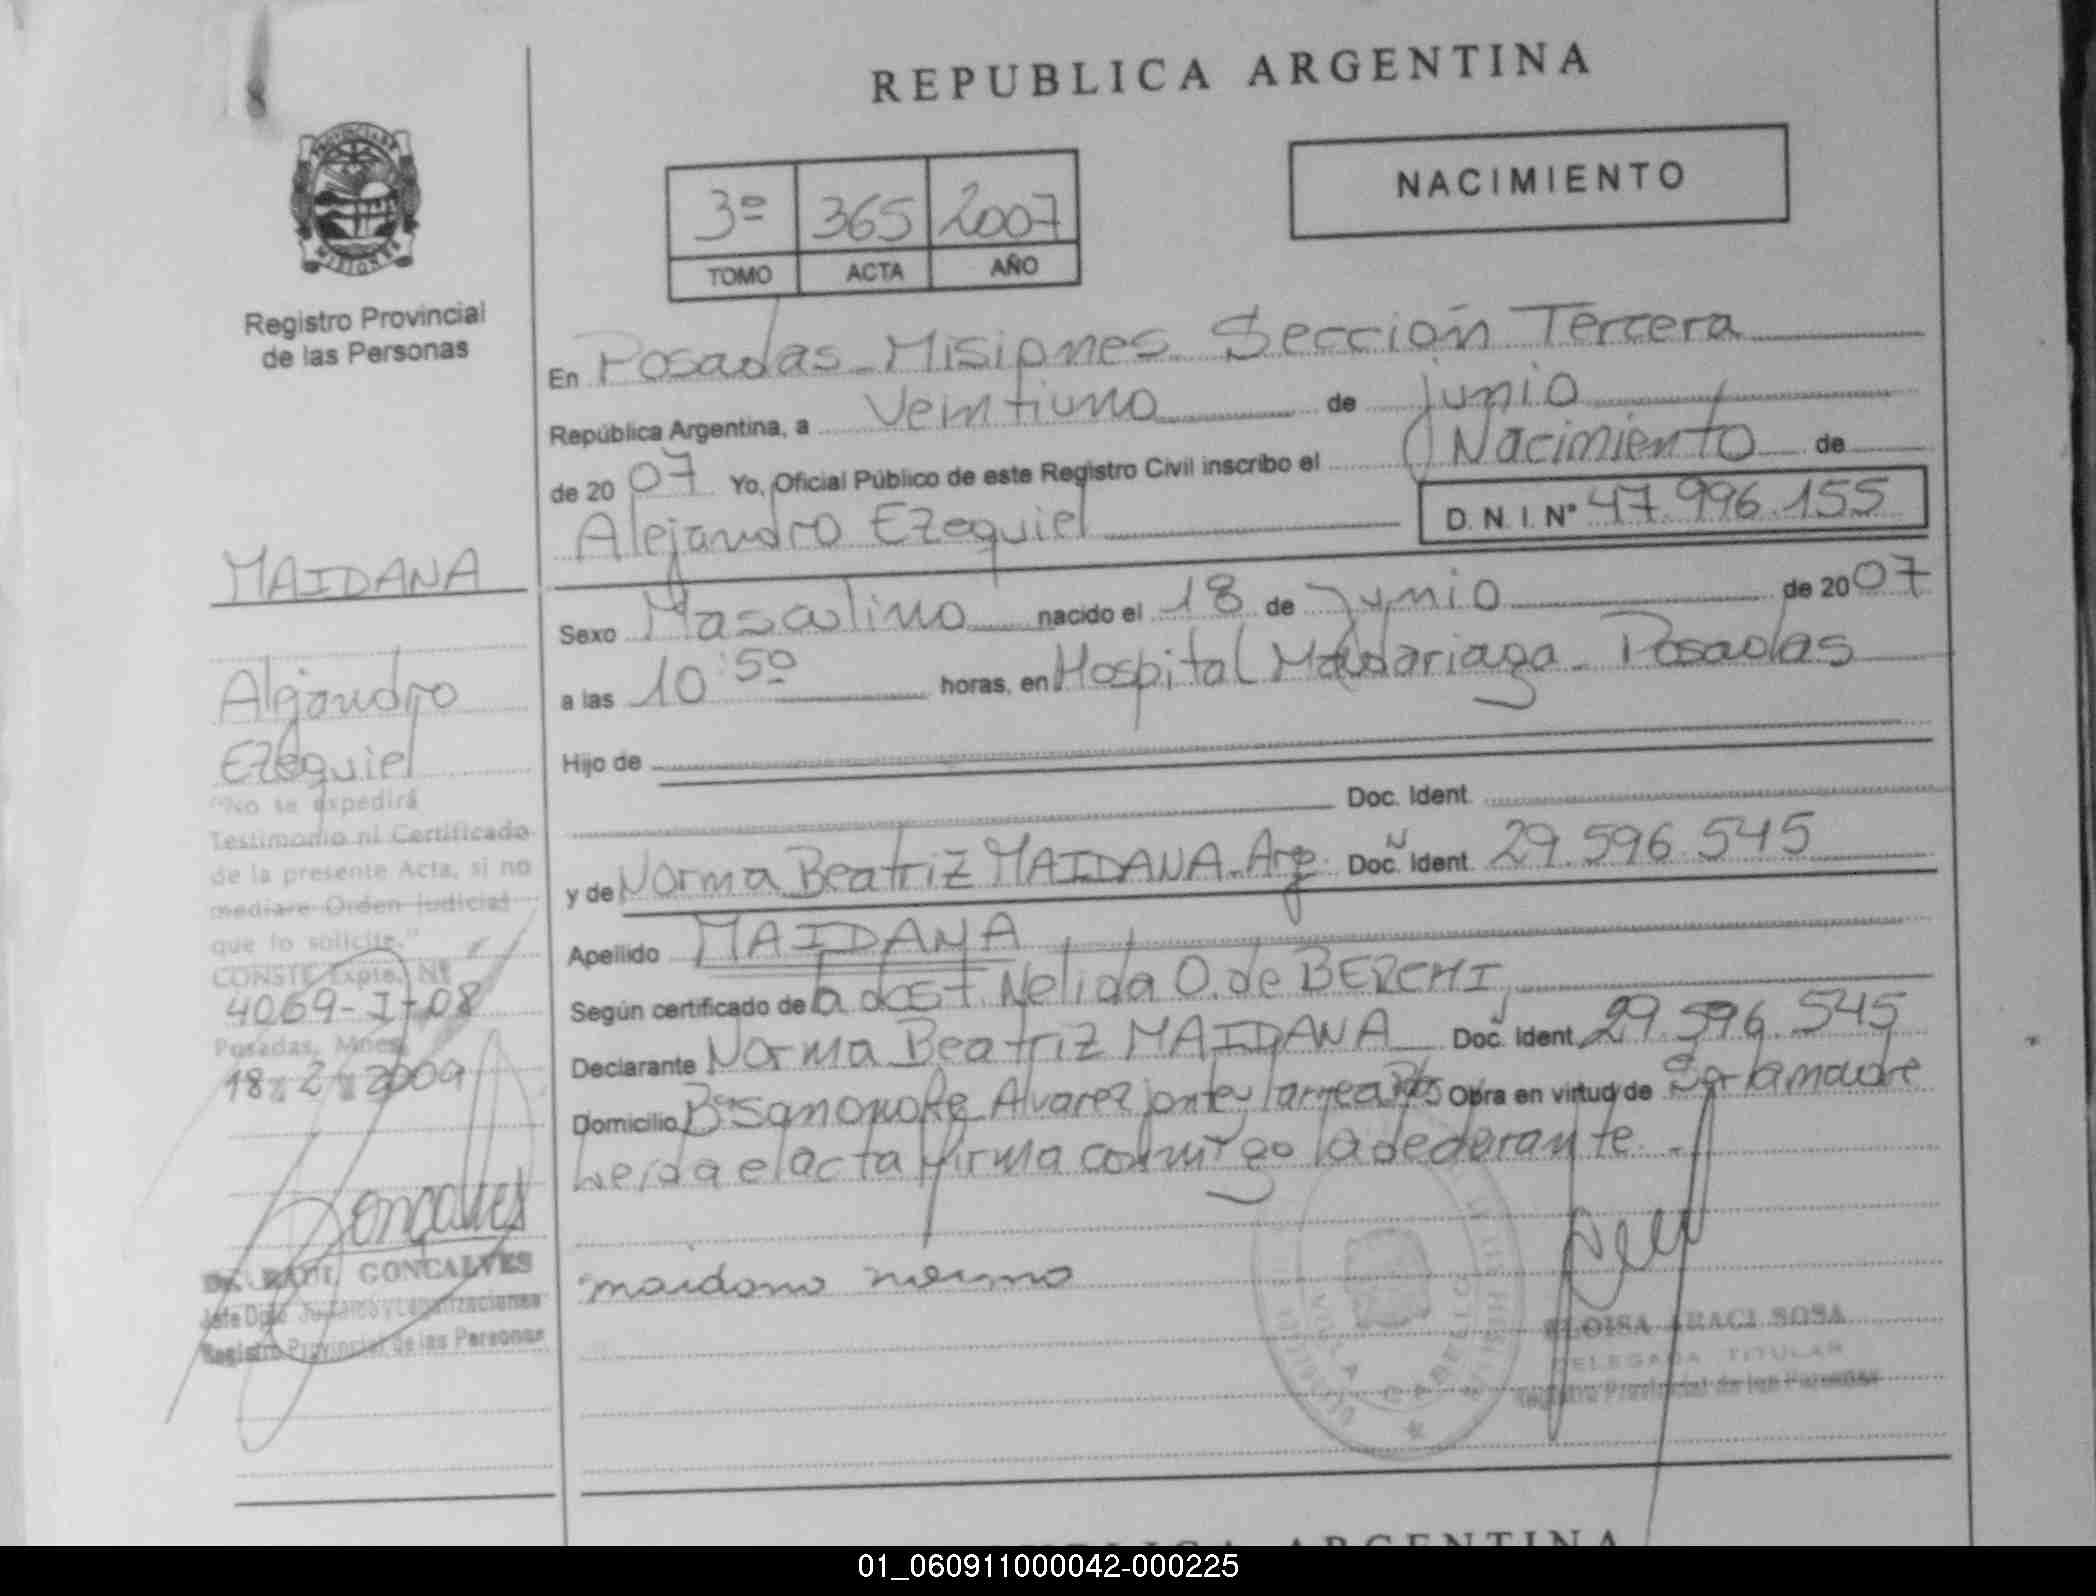 REPUBLICA ARGENTINA
NACIMIENTO
3º 365 2007
TOMO ACTA AÑO
PROVINCIA DE
MISIONES
Registro Provincial
de las Personas
En Posadas - Misiones Sección Tercera
República Argentina, a Veintiuno de junio
de 2007 Yo, Oficial Público de este Registro Civil inscribo el Nacimiento de
Alejandro Ezequiel D. N. I. Nº 47.996.155
MAIDANA
Alejandro
Ezequiel
Sexo Masculino nacido el 18 de Junio de 2007
a las 10:50 horas, en Hospital Madariaga - Posadas
Hijo de
Doc. Ident.
y de Norma Beatriz MAIDANA - Arg. Doc. Ident. 29.596.545
Apellido MAIDANA
Según certificado de la obst Nelida O. de BERCHI
Declarante Norma Beatriz MAIDANA Doc. Ident. 29.596.545
Domicilio Bº San Onofre Alvarez jonte y larrea Pdas Obra en virtud de Ser la madre
Leida el acta firma conmigo la declarante.-
maidana norma
"No se expedirá
Testimonio ni Certificado
de la presente Acta, si no
mediare Orden Judicial
que lo solicite."
CONSTE Expte. Nº
4069-I-08
Posadas, Mnes.
18 2 2009
Gonçalves
Dr. RAUL GONCALVES
Registro Provincial de las Personas
ELOISA ARACI SOSA
DELEGADA TITULAR
Registro Provincial de las Personas
VILLA CABELLO
REPUBLICA ARGENTINA
01_060911000042-000225